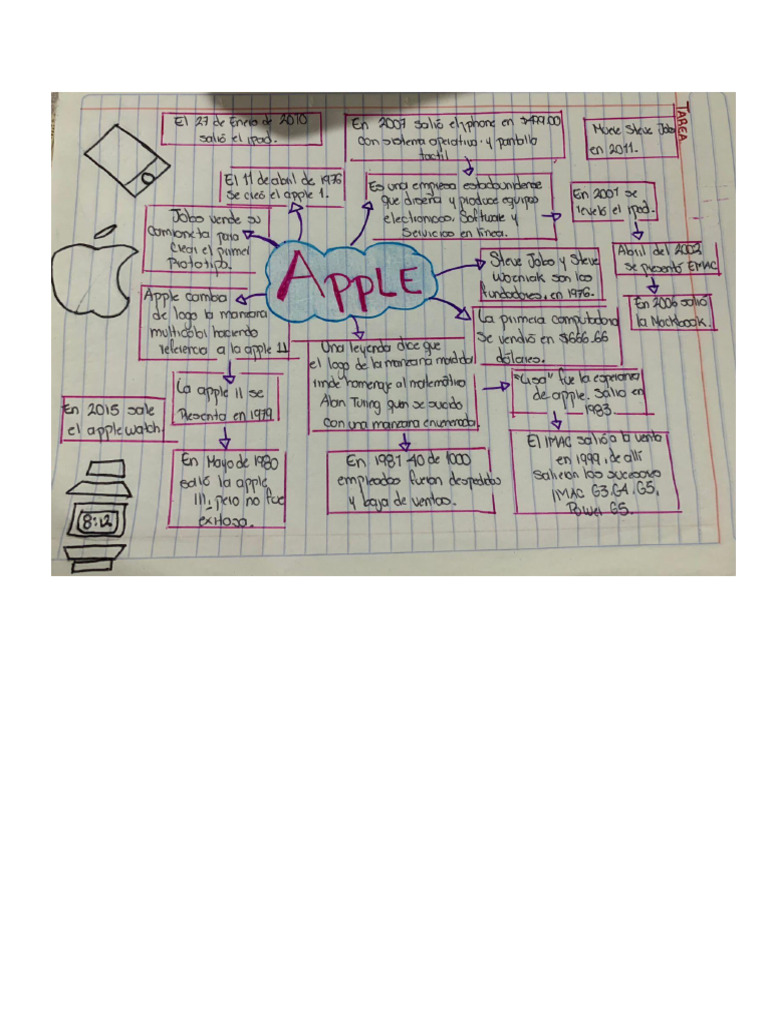 TAREA
El 27 de Enero de 2010
salió el ipad.
En 2007 salió el iphone en $499.00
con sistema operativo y pantalla
tactil
Muere Steve Jobs
en 2011.
El 11 de abril de 1976
se creó el apple 1.
Es una empresa estadounidense
que diseña y produce equipos
electronicos, Software y
Servicios en linea.
En 2001 se
revelo el ipod.
Jobs vende su
camioneta para
crear el primer
prototipo.
APPLE
Steve Jobs y Steve
Wozniak son los
fundadores, en 1976.
Abril del 2002
se presento EMAC
Apple cambia
de logo la manzana
multicolor haciendo
referencia a la apple 11
La primera computadora
se vendió en $666.66
dólares.
En 2006 salió
la Mackbook.
Una leyenda dice que
el logo de la manzana mordida
rinde homenaje al matemático
Alan Turing quien se suicido
con una manzana envenenada
La apple 11 se
Presenta en 1979.
"Lisa" fue la esperanza
de apple. Salio en
1983.
En 2015 sale
el applewatch.
En Mayo de 1980
salió la apple
111, pero no fue
exitosa.
En 1981 40 de 1000
empleados fueron despedidos
y baja de ventas.
El IMAC salió a la venta
en 1999, de allí
salieron los sucesores
IMAC G3, G4, G5,
Power G5.
8:12